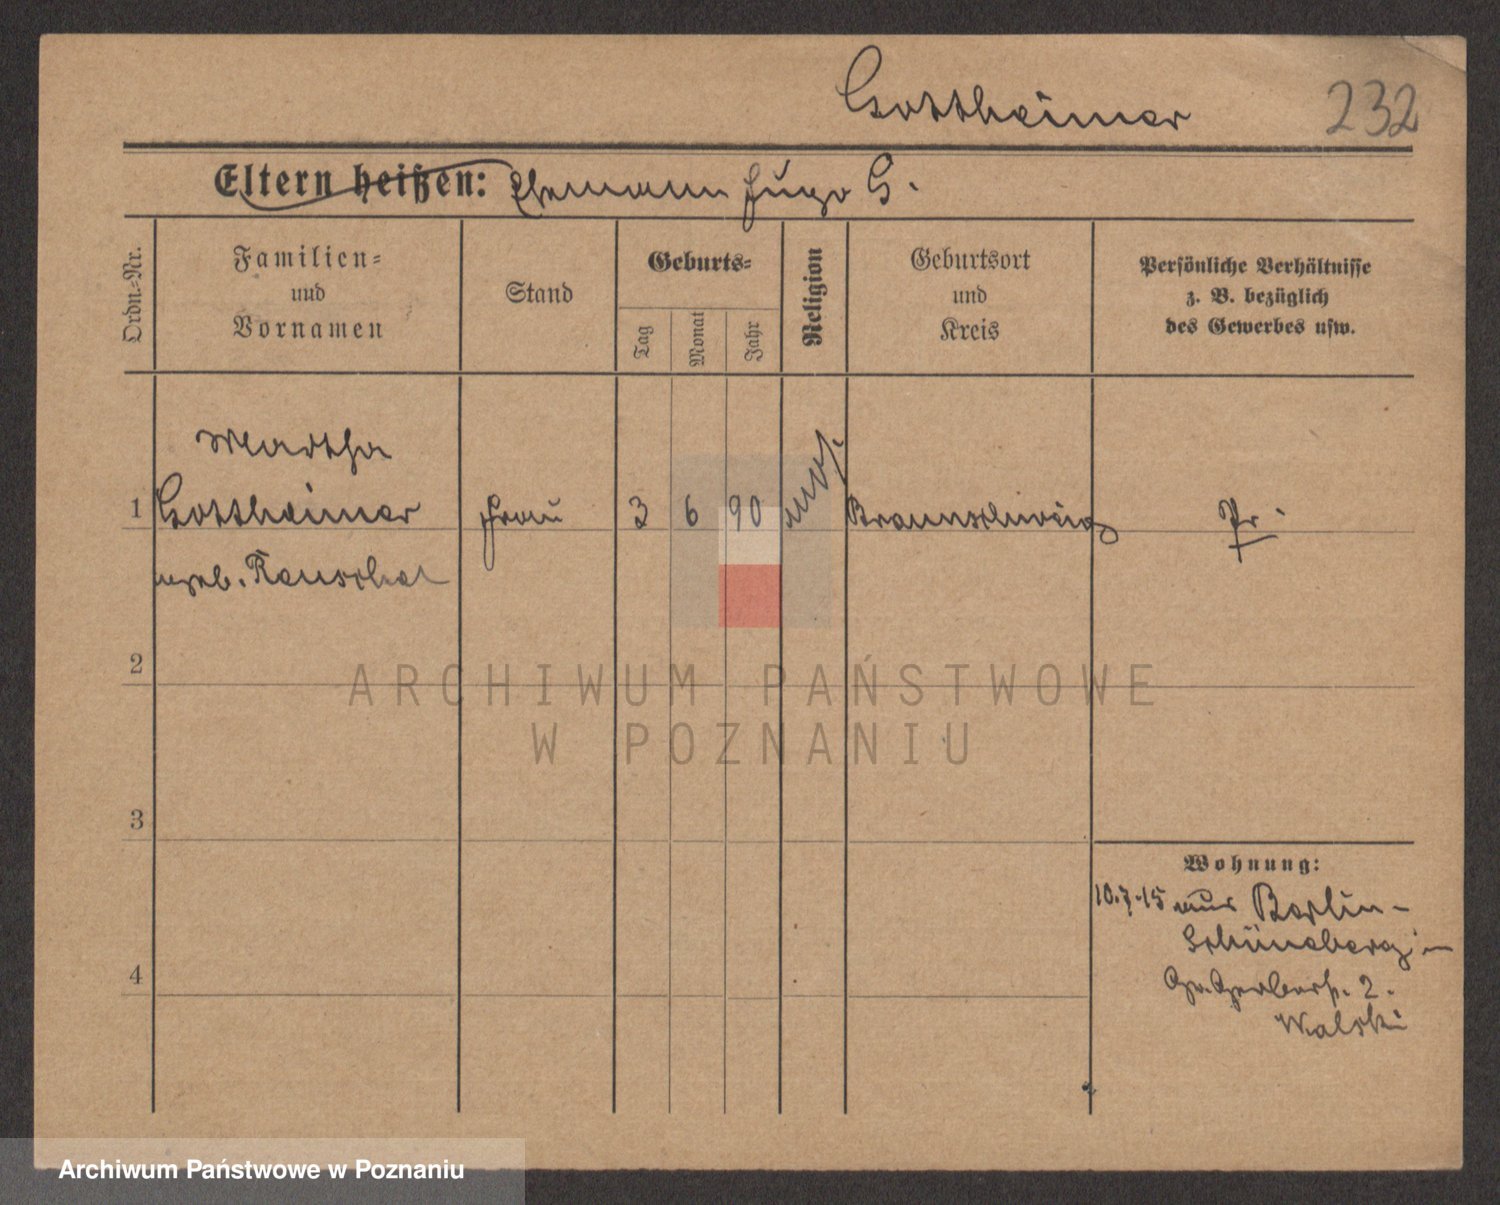 Gottheimer 232
Eltern heißen: Ehemann Hugo G.
Ordn.-Nr.
Familien-
und
Vornamen
Stand
Geburts-
Tag
Monat
Jahr
Religion
Geburtsort
und
Kreis
Persönliche Verhältnisse
z. B. bezüglich
des Gewerbes usw.
Martha
1 Gottheimer Frau 3 6 90 Braunschweig Pr.
geb.
2
ARCHIWUM PAŃSTWOWE
W POZNANIU
3
Wohnung:
10.7.15 aus Berlin-
Schöneberg in
4
Gr. Gerberstr. 2.
Walski
Archiwum Państwowe w Poznaniu